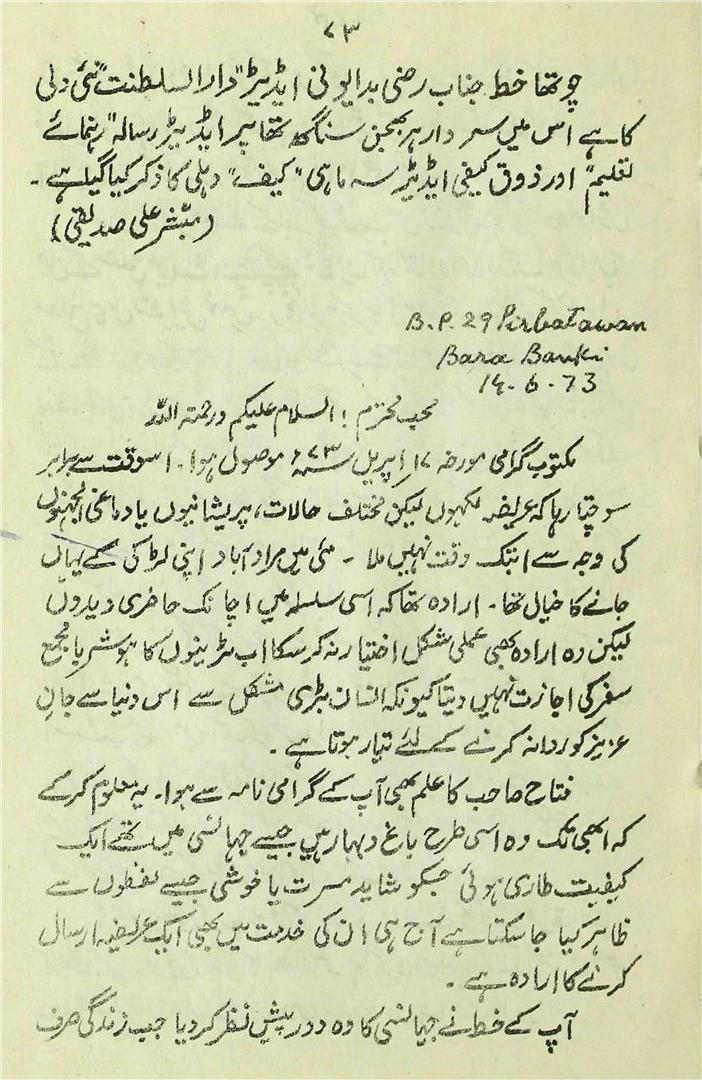 ۷۳
چوتھا خط جناب رضی بدایونی ایڈیٹر "دارالسلطنت" نئی دلی
کا ہے اس میں سردار ہربھجن سنگھ تھاپر ایڈیٹر رسالہ "رہنمائے
تعلیم" اور ذوق کیفی ایڈیٹر سہ ماہی "کیف" دہلی کا ذکر کیا گیا ہے۔
(مبشر علی صدیقی)
B.P. 29 Pirbatawan
Bara Banki
14-6-73
محب محترم! السلام علیکم ورحمتہ اللہ
مکتوب گرامی مورخہ ۱۷ اپریل ۷۳ء موصول ہوا۔ اسوقت سے برابر
سوچتا رہا کہ عریضہ لکھوں لیکن مختلف حالات، پریشانیوں یا دماغی الجھنوں
کی وجہ سے ابتک وقت نہیں ملا ۔ مئی میں مرادآباد اپنی لڑکی کے یہاں
جانے کا خیال تھا۔ ارادہ تھا کہ اسی سلسلہ میں اچانک حاضری دیدوں
لیکن وہ ارادہ بھی عملی شکل اختیار نہ کر سکا اب ٹرینوں کا ہوشربا مجمع
سفر کی اجازت نہیں دیتا کیونکہ انسان بڑی مشکل سے اس دنیا سے جان
عزیز کو روانہ کرنے کے لئے تیار ہوتا ہے ۔
فتاح صاحب کا علم بھی آپ کے گرامی نامہ سے ہوا۔ یہ معلوم کر کے
کہ ابھی تک وہ اسی طرح باغ وبہار ہیں جیسے جھانسی میں تھے ایک
کیفیت طاری ہوئی جسکو شاید مسرت یا خوشی جیسے لفظوں سے
ظاہر کیا جا سکتا ہے آج ہی ان کی خدمت میں بھی ایک عریضہ ارسال
کرنے کا ارادہ ہے ۔
آپ کے خط نے جھانسی کا وہ دور پیش نظر کر دیا جب زندگی صرف